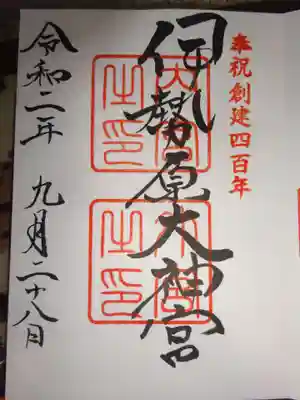 奉祝創建四百年
伊勢原大神宮
令和二年 九月二十八日